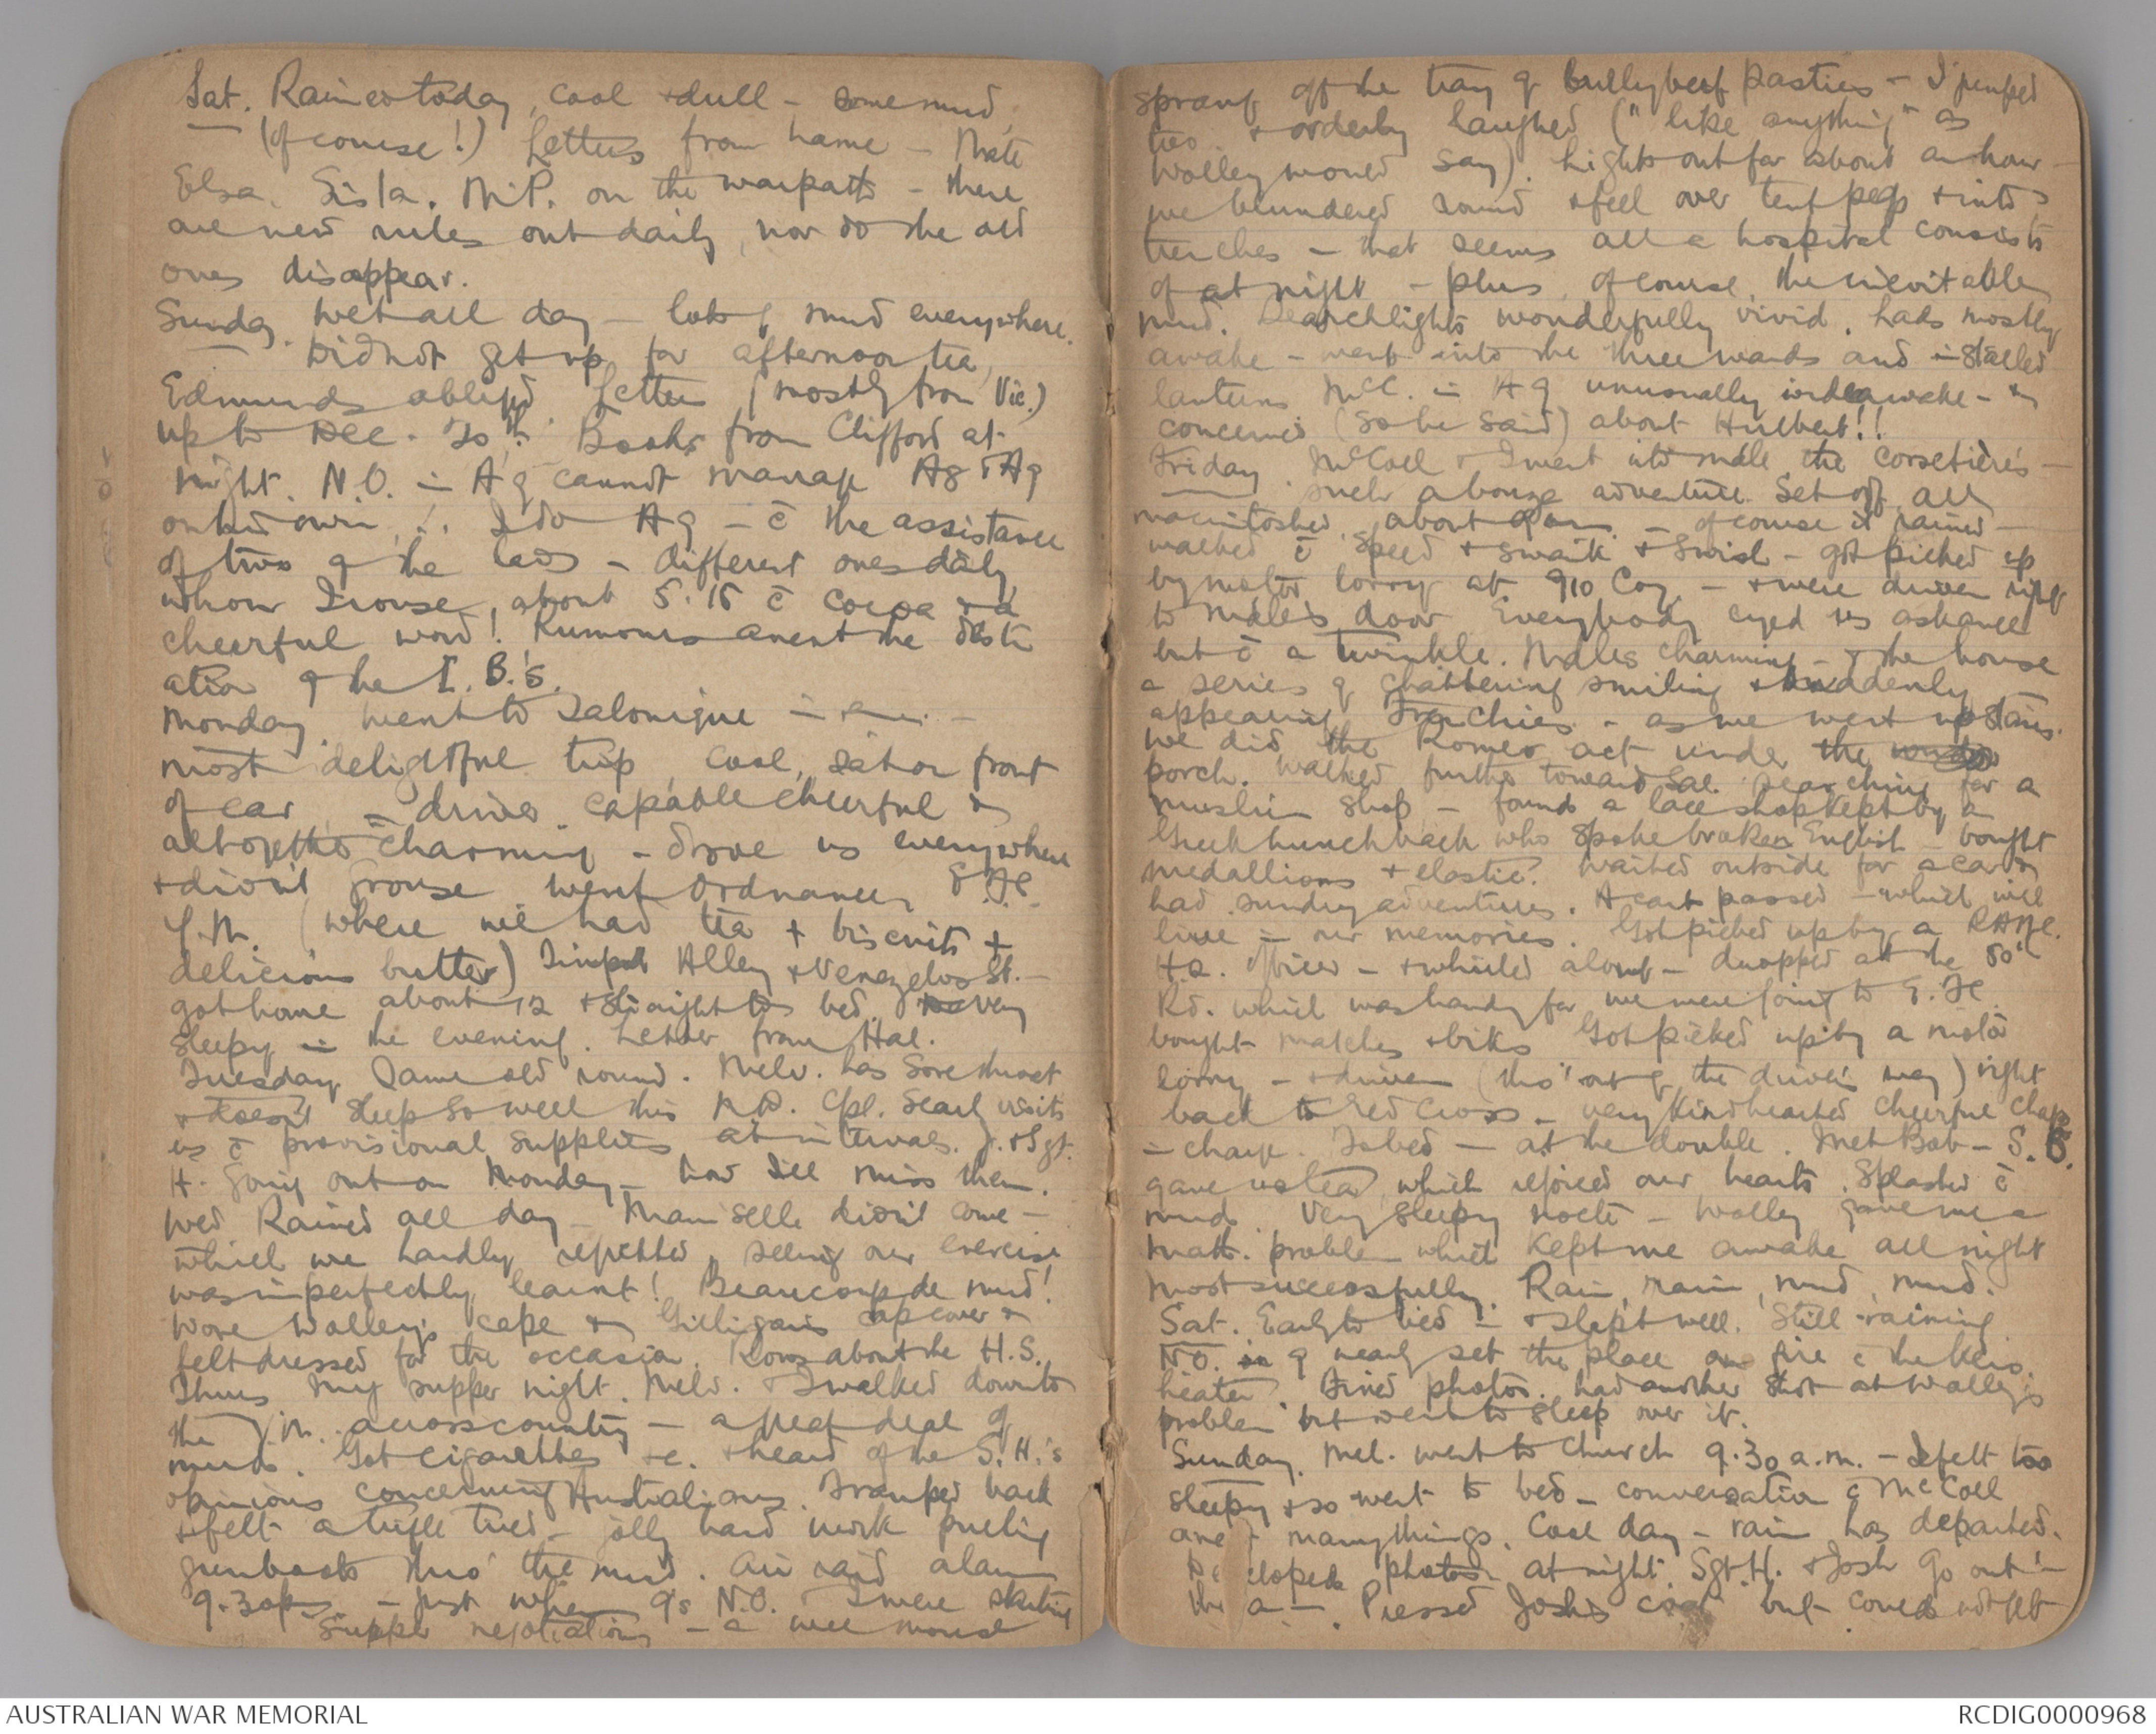 Sat. Rained today, cool & dull - some mud
(of course!) Letters from home - Mate
Elsa. Sisla. M.P. on the warpath - there
are new rules out daily, nor do the old
ones disappear.
Sunday. Wet all day - lots of mud everywhere.
Did not get up for afternoon tea,
Edmunds obliged. Letters (mostly from Vic.)
up to Dec. 20th. Books from Clifford at
night. N.O. in A9 cannot manage A8 & A9
on her own!! I do A9 - c̄ the assistance
of two of the lads - different ones daily
whom I rouse, about 5.15 c̄ cocoa & a
cheerful word! Rumours anent the destin
ation of the I.B's.
Monday. Went to Salonique in -
most delightful trip, cool, sat on front
of car - driver capable cheerful &
altogether charming - drove us everywhere
& didn't grouse went Ordnance, E.F.C.
Y.M. (where we had tea & biscuits &
delicious butter) Alley & Venezelos St. -
got home about 12 & straight to bed. Very
sleepy in the evening. Letter from Hal.
Tuesday Same old round. Melv. has sore throat
& doesn't sleep so well this A.M. Cpl. Searl visits
us c̄ provisional supplies at intervals. J. & Sgt.
H. going out on Monday - how I'll miss them.
Wed Rained all day - Mam'selle didn't come -
which we hardly regretted, seeing our exercise
was imperfectly learnt! Beaucoup de mud!
Wore Wolley's cape & Gilligan's cap cover &
felt dressed for the occasion. Rows about the H.S.
Thurs my supper night. Melv. & I walked down to
the Y.M. across country - a great deal of
mud. Got cigarettes &c. & heard of the S.H.'s
opinions concerning Australians. Tramped back
& felt a trifle tired - jolly hard work pulling
gumboots thro' the mud. Air raid alarm
9.30pm - just when 9's N.O. & I were starting
supper negotiations - a wee mouse
sprang off the tray of bullybeef pasties - I jumped
too & orderly laughed ("like anything" as
Wolley would say). Lights out for about an hour -
we blundered round & fell over tent pegs & into
trenches - that seems all a hospital consists
of at night - plus, of course, the inevitable
mud. Searchlights wonderfully vivid. Lads mostly
awake - went into the three wards and installed
lanterns McC. in A9 unusually wideawake - &
concerned (so he said) about Hulbert!!
Friday. McColl & I went into Mdle the corsetière's -
such a bonza adventure. Set off all
macintoshed about 9am - of course it rained -
walked c̄ speed & swank & swish - got picked up
by motor lorry at 910 Coy. - & were driven right
to Mdle's door. Everybody eyed us askance
but c̄ a twinkle. Mdles charming - & the house
a series of chattering smiling & suddenly
appearing Frenchies - as we went upstairs.
We did the Romeo act under the
porch. Walked further toward Sal. searching for a
muslin shop - found a lace shop kept by a
Greek hunchback who spoke broken English - bought
medallions & elastic. Waited outside for a car &
had sundry adventures. A cart passed - which will
live in our memories. Got picked up by a RAMC.
H.Q. officer - & whirled along - dropped at the
Rd. which was handy for we were going to E.F.C.
bought matches & biks Got picked up by a motor
lorry - & driven (tho' out of the driver's way) right
back to Red Cross - very kindhearted cheerful chap
in charge. To bed - at the double. Met Bob - S.B.
gave us tea, which rejoiced our hearts. Splashed c̄
mud. Very sleepy nocte - Wolley gave me a
math. problem which kept me awake all night
most successfully. Rain, rain, mud, mud.
Sat. Early to bed - & slept well. Still raining.
N.O. in 9 nearly set the place on fire c̄ the kero
heater. Fixed photos. Had another shot at Wolley's
problem but went to sleep over it.
Sunday. Mel. went to church 9.30 a.m. - I felt too
sleepy & so went to bed - conversation c̄ McColl
anent many things. Cool day - rain has departed.
Developed photos at night. Sgt. H. & Josh go out in
the a - . Pressed Josh's coat but could not get
AUSTRALIAN WAR MEMORIAL
RCDIG0000968